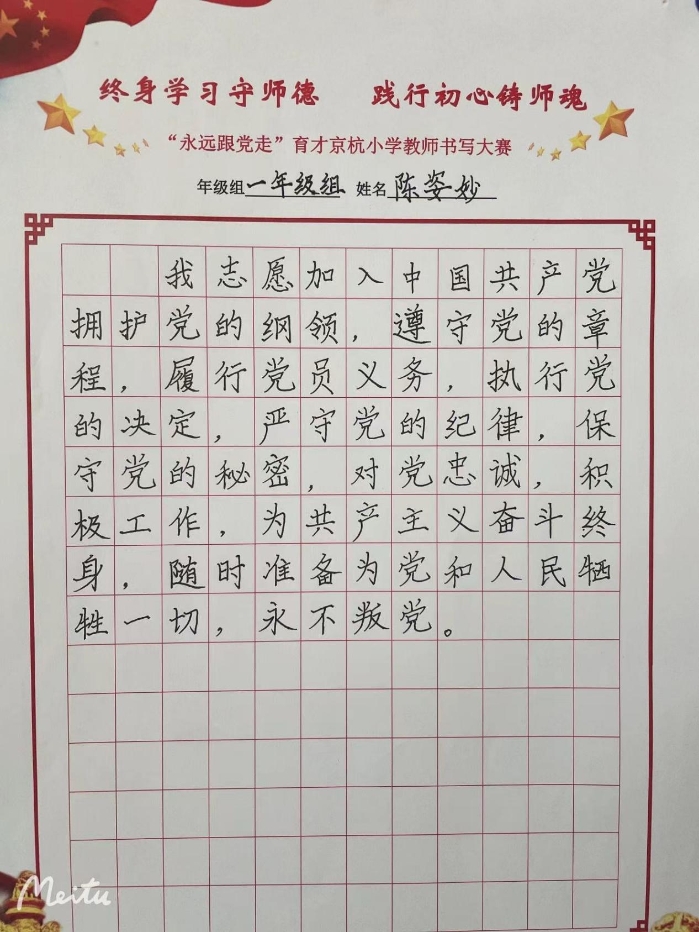 终身学习守师德 践行初心铸师魂
“永远跟党走”育才京杭小学教师书写大赛
年级组一年级组 姓名陈姿妙
我志愿加入中国共产党
拥护党的纲领,遵守党的章
程,履行党员义务,执行党
的决定,严守党的纪律,保
守党的秘密,对党忠诚,积
极工作,为共产主义奋斗终
身,随时准备为党和人民牺
牲一切,永不叛党。
Meitu